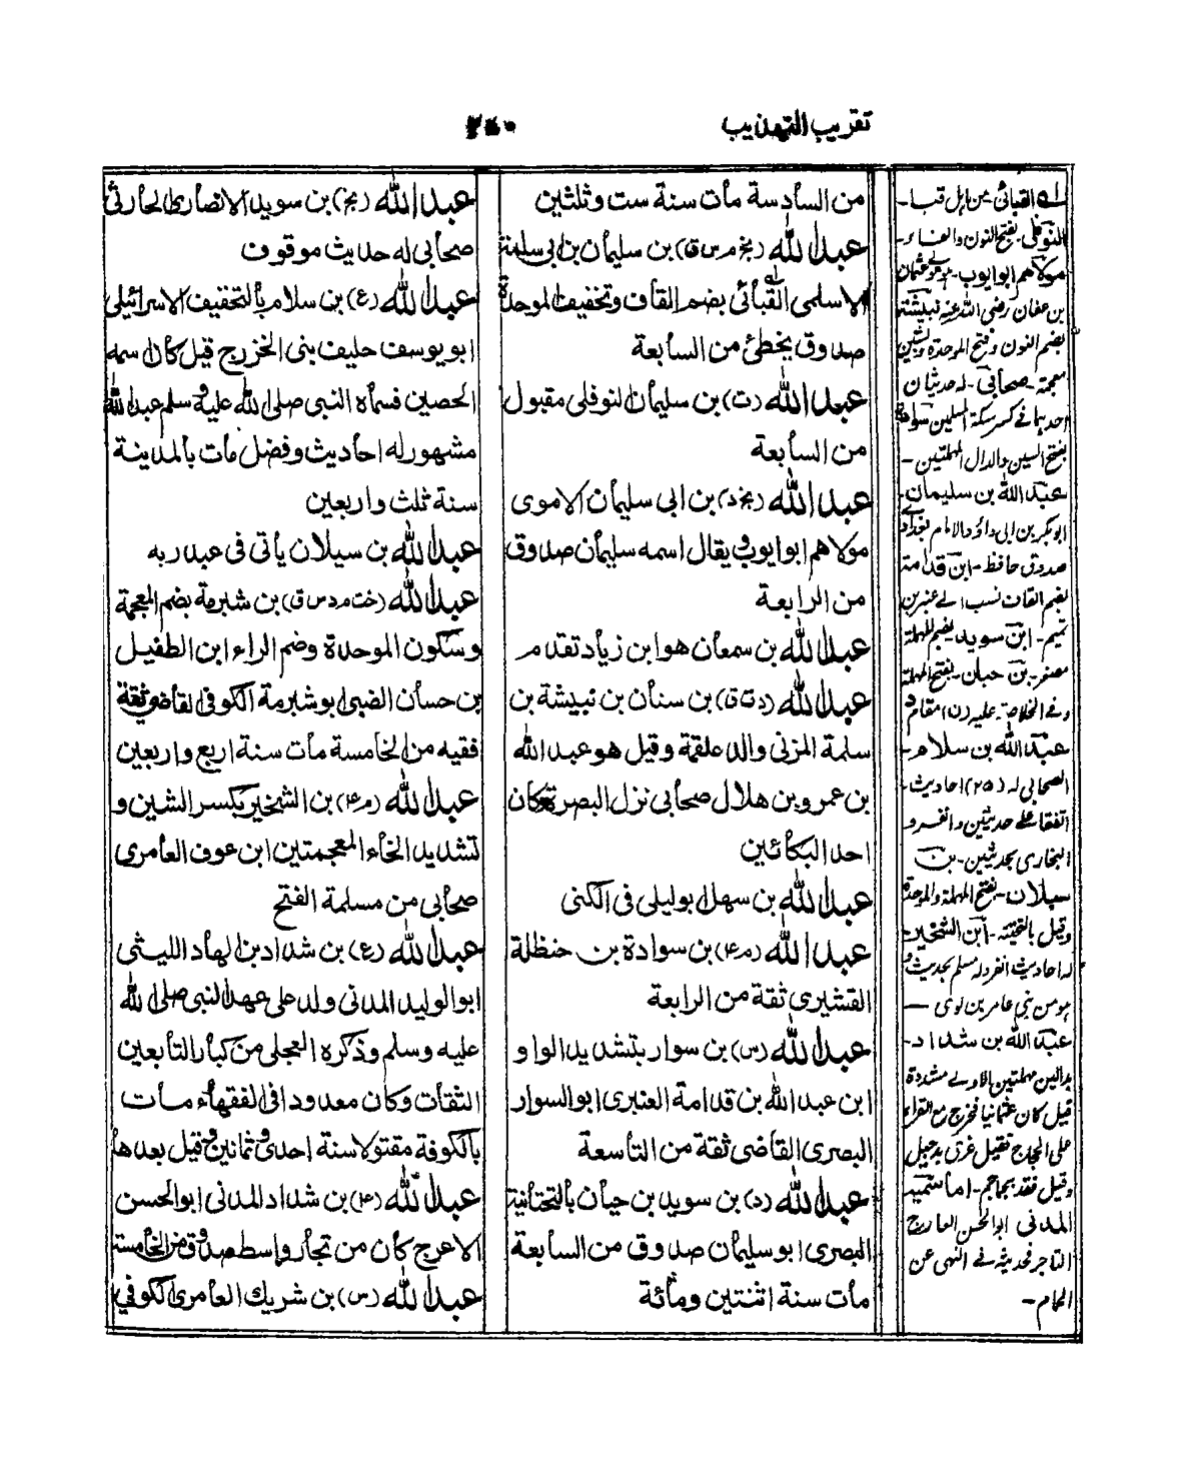 تقریب التہذیب
من السادسة مات سنة ست وثلثين
عبد الله (بخ م س ق) بن سليمان بن ابى سلمة
الاسلمى القبائى بضم القاف وتخفيف الموحدة
صدوق يخطئ من السابعة
عبد الله (ت) بن سليمان النوفلى مقبول
من السابعة
عبد الله (بخ د) بن ابى سليمان الاموى
مولاهم ابو ايوب يقال اسمه سليمان صدوق
من الرابعة
عبد الله بن سمعان هو ابن زياد تقدم
عبد الله (د ت ق) بن سنان بن نبيشة بن
سلمة المزنى والد علقمة وقيل هو عبد الله
بن عمرو بن هلال صحابى نزل البصرة وكان
احد البكائين
عبد الله بن سهل ابو ليلى فى الكنى
عبد الله (م ۴) بن سوادة بن حنظلة
القشيرى ثقة من الرابعة
عبد الله (س) بن سوار بتشديد الواو
ابن عبد الله بن قدامة العنبرى ابو السوار
البصرى القاضى ثقة من التاسعة
عبد الله (د) بن سويد بن حيان بالتحتانية
البصرى ابو سليمان صدوق من السابعة
مات سنة اثنتين ومائة
عبد الله (بخ) بن سويد الانصارى الحارثى
صحابى له حديث موقوف
عبد الله (ع) بن سلام بالتخفيف الاسرائيلى
ابو يوسف حليف بنى الخزرج قيل كان اسمه
الحصين فسماه النبى صلى الله عليه وسلم عبد الله
مشهور له احاديث وفضل مات بالمدينة
سنة ثلث واربعين
عبد الله بن سيلان ياتى فى عبد ربه
عبد الله (خت م د س ق) بن شبرمة بضم المعجمة
وسكون الموحدة وضم الراء ابن الطفيل
بن حسان الضبى ابو شبرمة الكوفى القاضى ثقة
فقيه من الخامسة مات سنة اربع واربعين
عبد الله (م ۴) بن الشخير بكسر الشين و
تشديد الخاء المعجمتين ابن عوف العامرى
صحابى من مسلمة الفتح
عبد الله (ع) بن شداد بن الهاد الليثى
ابو الوليد المدنى ولد على عهد النبى صلى الله
عليه وسلم وذكره العجلى من كبار التابعين
الثقات وكان معدودا فى الفقهاء مات
بالكوفة مقتولا سنة احدى وثمانين وقيل بعدها
عبد الله (۴) بن شداد المدنى ابو الحسن
الاعرج كان من تجار واسط صدوق من الخامسة
عبد الله (س) بن شريك العامرى الكوفى
له القبائى من اہل قبا-
النوفلى بفتح النون والفاء-
مولاهم ابو ايوب- مولى عثمان
بن عفان رضى الله عنه نبيشة
بضم النون وفتح الموحدة وشين
معجمة- صحابى- له حديثان
احدہما فى كسر سكة المسلمين سوادة
بفتح السين والدال المهملتين-
عبد الله بن سليمان-
ابو بكر بن ابى داؤد الامام بغدادى
صدوق حافظ- ابن قدامة
بضم القاف نسب الى عنبر بن
تميم- ابن سويد بضم المهملة
مصغر- بن حبان- بفتح المهملة
وفى الخلاصة- عليه (ن) مقام د
عبد الله بن سلام-
الصحابى له (۲۵) احاديث-
اتفقا على حديثين وانفرد
البخارى بحديثين- بن
سيلان- بفتح المهملة والموحدة
وقيل بالتحتية- ابن الشخير-
له احاديث انفرد له مسلم بحديث و
ہو من بنى عامر بن لوى-
عبد الله بن شداد-
بدالين مهملتين الاولى مشددة
قيل كان عثمانيا فخرج مع القراء
على الحجاج فقيل غرق بدجيل
وقيل فقد بجماجم- اما سميه
المدنى ابو الحسن الاعرج
التاجر فحديثه فى النهى عن
الحمام-